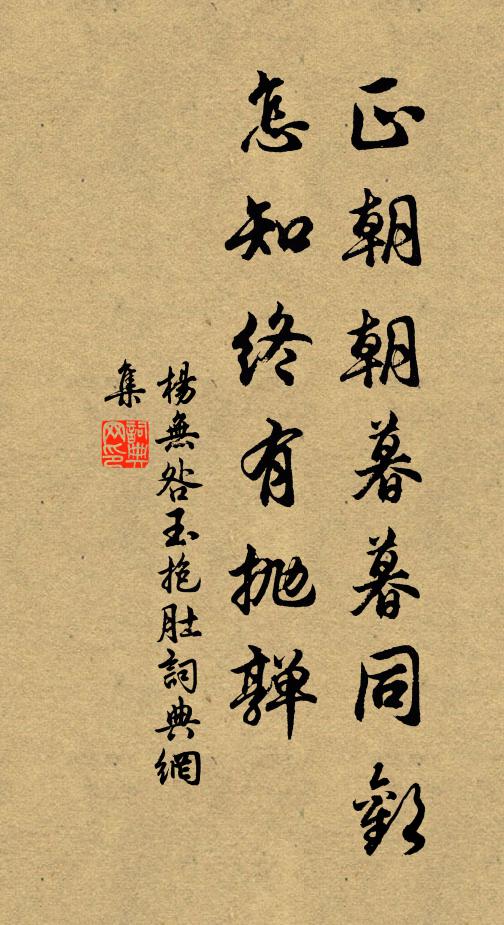 正朝朝暮暮同歡
怎知終有拋嚲
楊無咎玉抱肚詞典網
集
詞典
网印